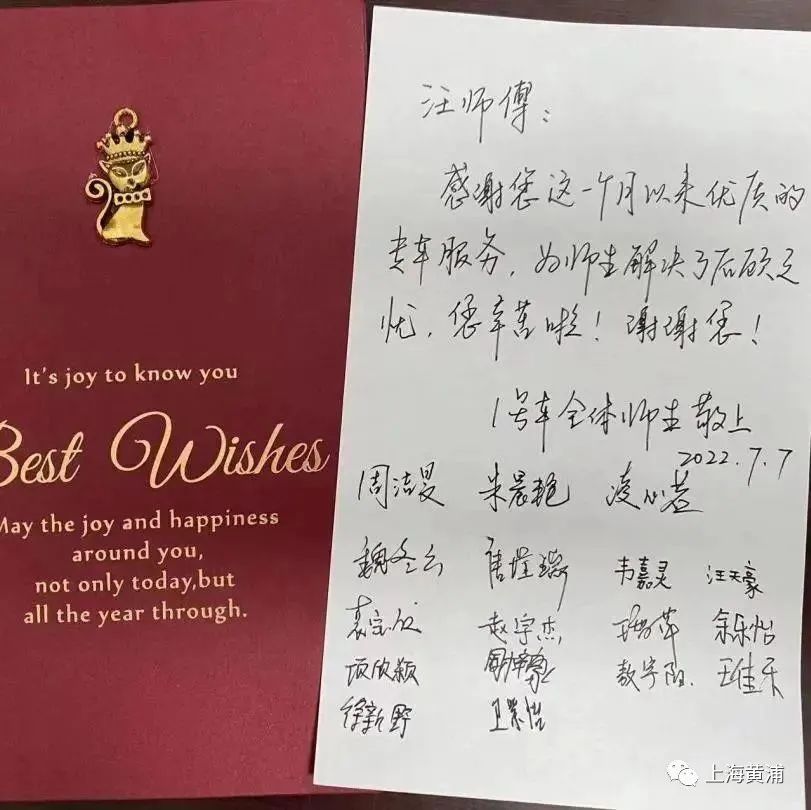 It's joy to know you
Best Wishes
May the joy and happiness
around you,
not only today,but
all the year through.
汪师傅：
感谢您这一个月以来优质的
专车服务，为师生解决了后顾之
忧，您辛苦啦！谢谢您！
1号车全体师生敬上
2022.7.7
周洁旻 朱晨艳 凌心慧
魏冬云 韦嘉灵 汪天豪
赵宇杰 余乐怡
项欣颖 王佳乐
徐新野
上海黄浦